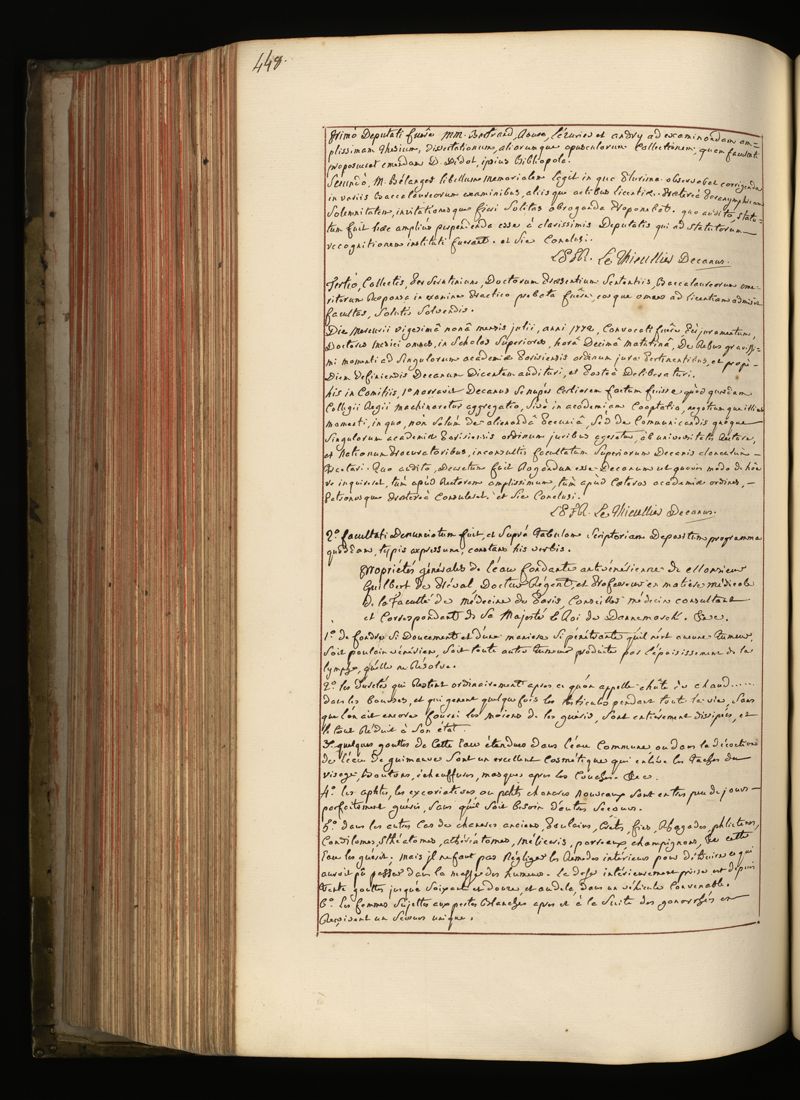 448.
Primo Deputati fuere MM. Bertrand, et andry ad examinandam am=
plissimam thesium, Dissertationum, aliorumque opusculorum Collectionem, quam
proposuerat emendam D. Didot, ipsius Bibliopola.
Secundo, M. Bélanger libellum memorialem legit in quo plurima observabat corrigenda
in variis Baccalaureorum examinibus, aliisque actibus licentiæ. Præterea
Solemnitatem, invitationesque fieri Solitas abrogandas proponebat. quo audito, statu=
tum fuit hæc amplius perpendenda esse a clarissimis Deputatis qui ad statutorum
recognitionem instituti fuerant. et sic Conclusi.
Le Thieullier Decanus.
Tertio, Collectis, per Scrutinium, Doctorum præsentium Sententiis, Baccalaureorum eme=
ritorum Responsa in examine practico probata fuere, eosque omnes ad licentiam admisit
facultas, Solutis Solvendis.
Die Mercurii vigesimâ nonâ mensis julii, anni 1772, Convocati fuere per juramentum,
Doctores Medici omnes, in Scholas Superiores, horâ Decimâ matutinâ, De Rebus gravissi=
mi momenti ad Singulorum academiæ parisiensis ordinum jura pertinentibus, et prope=
Diem Definiendis Decanum Dicentem audituri, et postea Deliberaturi.
his in Comitiis, 1° narravit Decanus Se nuper Certiorem factum fuisse quod quædam
Collegii Regii machinaretur aggregatio, Sive in academiam Cooptatio, negotiumque illius
momenti, in quo, non Solum de pecunia, Sed de Communicandis quoque
Singulorum academiæ parisiensis ordinum juribus ageretur, ab universitatis Rectore,
et Nationum procuratoribus, inconsultis facultatum Superiorum Decanis clanculum
tractari. Quo audito, Decretum fuit Rogandum esse Decanum ut quovis modo de hac
re inquireret, tum apud Rectorem amplissimum, tum apud Cæteros academiæ ordines,
Patronosque præterea Consuleret. et sic Conclusi.
Le Thieullier Decanus.
2° facultati Denunciatum fuit, et Supra tabulam Scriptoriam Depositum programma
quoddam, typis expressum, constans his verbis.
Propriétés générales de l'eau fondante antivénérienne de Monsieur
Guilbert de Préval Docteur Régent, et Professeur en matière médicale
De la faculté de médecine de paris, Conseiller médecin consultant
et Correspondant de Sa Majesté le Roi de Dannemarck. &c.
1° de fondre Si Doucement et d'une maniere Si pénétrante qu'il n'est aucune tumeur,
Soit poulain vénérien, Soit toute autre tumeur produite par l'épaississement de la
lymphe, qu'elle ne Résolve.
2° les duretés qui Restent ordinairement apres ce qu'on appelle chute de chaud.....
dans les bourses, et qui genent quelque fois les testicules pendant tout la vie, Sans
que l'on ait encore fourni les moiens de les guérir, Sont entierement dissipées, et
le tout Réduit à Son état.
3° quelques gouttes de Cette Eau étendues dans l'eau Commune ou dans la décoction
de l'eau de guimauve Sont un excellent Cosmétique qui enlève les taches du
visage, boutons, échauffures, masques apres les Couches. &c.
4° les aphtes, les excoriations ou petits chancres nouveaux Sont en tres peu de jours
parfaitement guéris, Sans qu'il Soit besoin d'autres Secours.
5° dans les autres Cas de chancres anciens, poulains, Crêtes, fics, Rhagades, phlictenes,
Condilomes, Sthéatomes, athérïatomes, Méliceris, porreaux, champignons, &c cette
Eau les guérit. Mais il ne faut pas Négliger les Remedes intérieurs pour détruire ce qui
auroit pû passer dans la masse des humeurs. La Dose intérieurement prise est depuis
trente gouttes jusqu'à Soixante et douze, et au delà, dans un véhicule Convenable.
6° Les femmes Sujettes aux pertes blanches apres et à la Suite des gonorrhées en
Reçoivent un Secours unique.